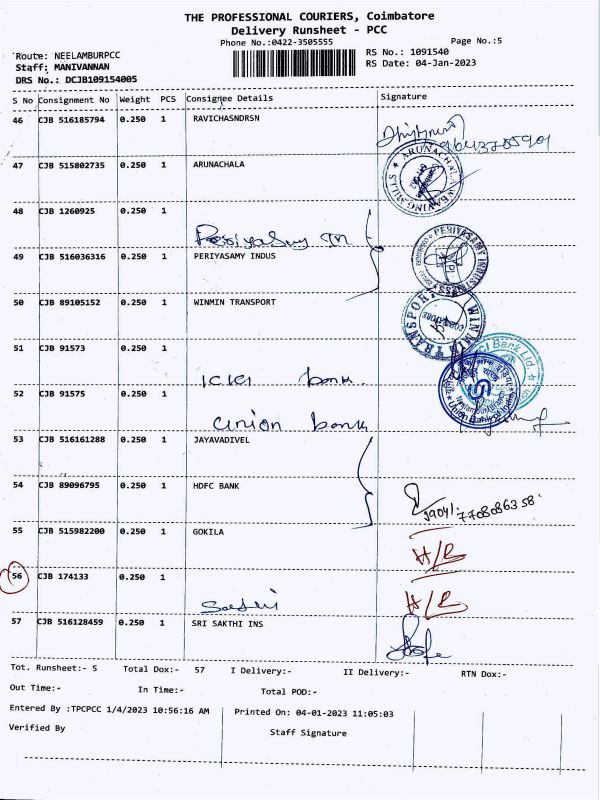 THE PROFESSIONAL COURIERS, Coimbatore
Delivery Runsheet - PCC
Phone No.:0422-3505555
Page No.:5
Route: NEELAMBURPCC
RS No.: 1091540
Staff: MANIVANNAN
RS Date: 04-Jan-2023
DRS No.: DCJB109154005
S No Consignment No Weight PCS Consignee Details Signature
46 CJB 516185794 0.250 1 RAVICHASNDRSN
9643785901
47 CJB 515802735 0.250 1 ARUNACHALA
48 CJB 1260925 0.250 1
Periyasamy In
49 CJB 516036316 0.250 1 PERIYASAMY INDUS
50 CJB 89105152 0.250 1 WINMIN TRANSPORT
WINMIN TRANSPORT
51 CJB 91573 0.250 1
ICICI bank
52 CJB 91575 0.250 1
Union bank
Union Bank of India
53 CJB 516161288 0.250 1 JAYAVADIVEL
54 CJB 89096795 0.250 1 HDFC BANK
55 CJB 515982200 0.250 1 GOKILA
H/R
56 CJB 174133 0.250 1
Sakthi
H/R
57 CJB 516128459 0.250 1 SRI SAKTHI INS
Tot. Runsheet:- 5 Total Dox:- 57 I Delivery:- II Delivery:- RTN Dox:-
Out Time:- In Time:- Total POD:-
Entered By :TPCPCC 1/4/2023 10:56:16 AM Printed On: 04-01-2023 11:05:03
Verified By Staff Signature